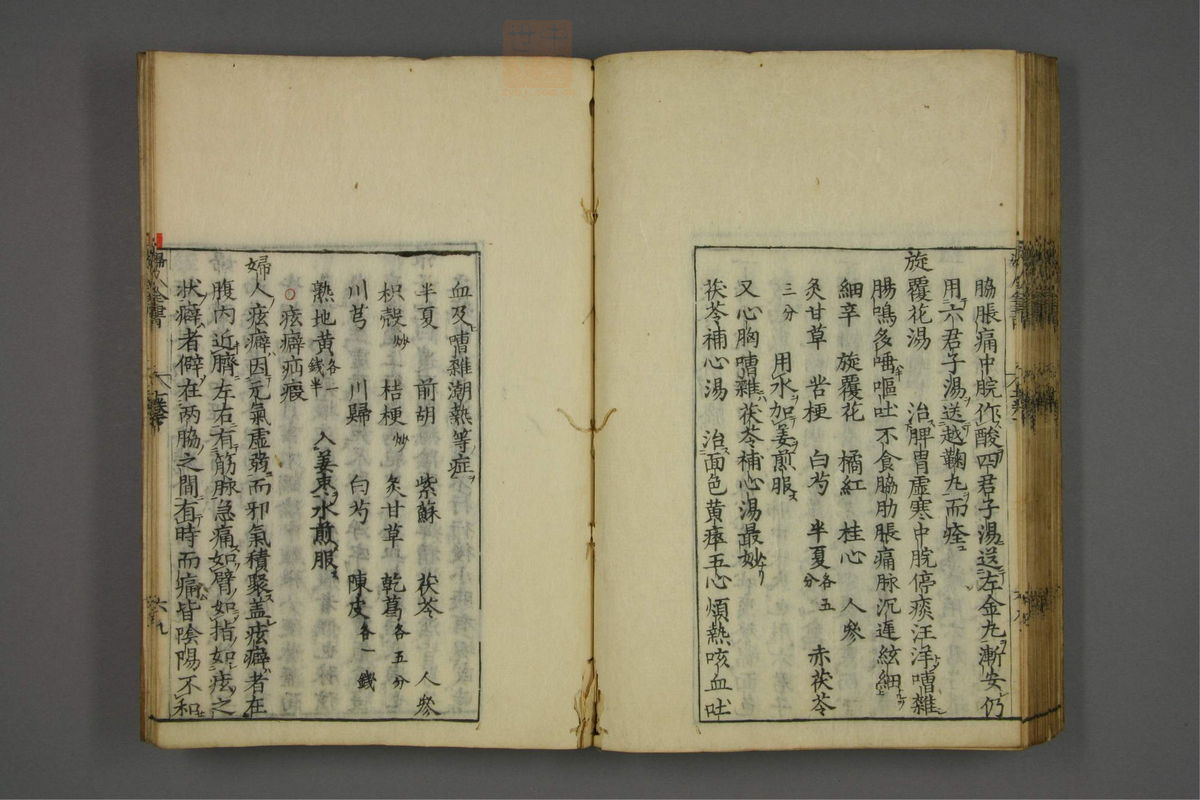 脇脹痛中脘作酸四君子湯送左金九漸安仍
用六君子湯送越鞠九而痊
旋覆花湯 治脾胃虚寒中脘停痰汪洋嘈雜
腸鳴多唾嘔吐不食脇肋脹痛脉沉遲絃細
細辛 旋覆花 橘紅 桂心 人參
炙甘草 桔梗 白芍 半夏各五分 赤茯苓
三分 用水加姜煎服
又心胸嘈雜茯苓補心湯最妙
茯苓補心湯 治面色黄瘁五心煩熱咳血吐
血及嘈雜潮熱等症
半夏 前胡 紫蘇 茯苓 人參
枳殼炒 桔梗炒 炙甘草 乾葛各五分
川芎 川歸 白芍 陳皮各一錢
熟地黄各一錢半 入姜枣水煎服
○痃癖疝瘕
婦人痃癖因元氣虚弱而邪氣積聚盖痃癖者在
腹内近臍左右有筋脉急痛如臂如指如痃之
状癖者僻在两脇之間有時而痛皆陰陽不和